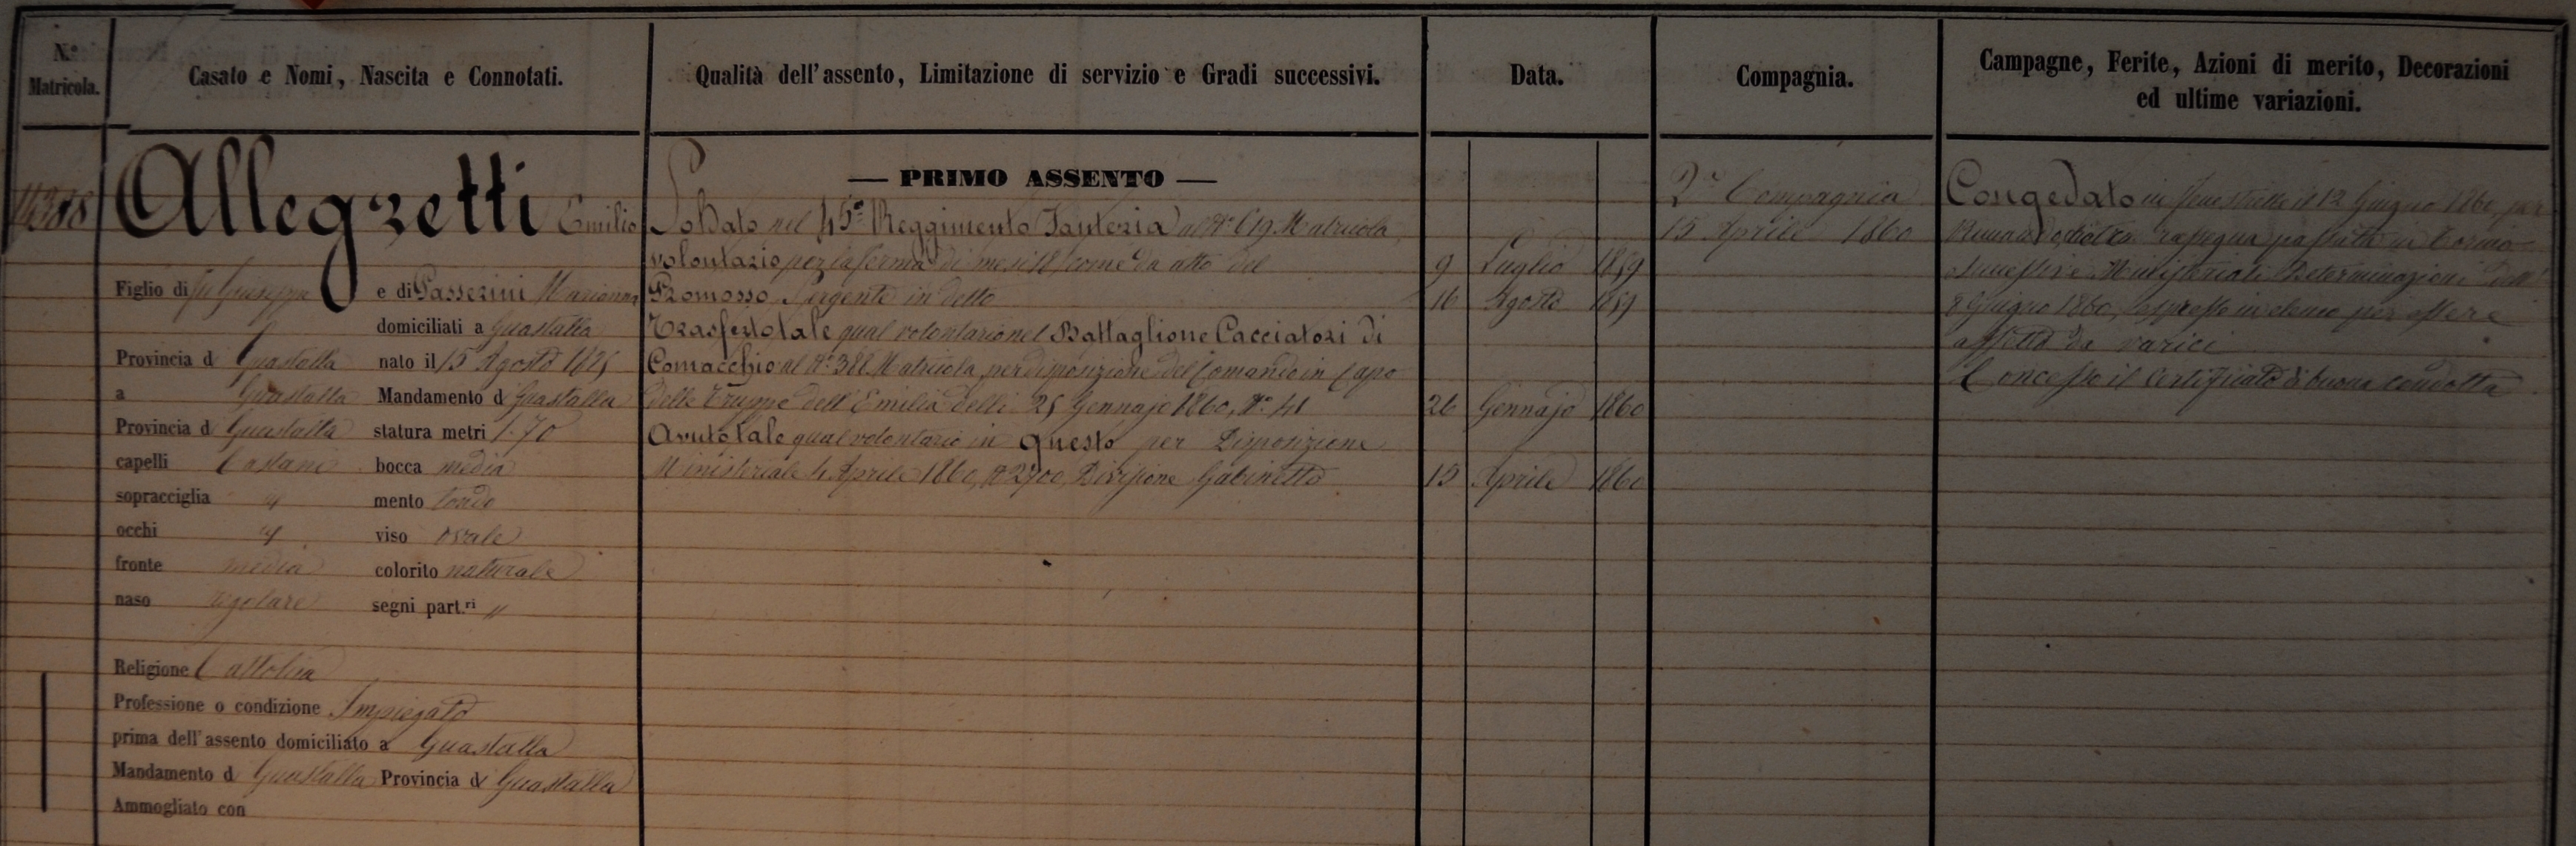 N.º Matricola.
Casato e Nomi, Nascita e Connotati.
Qualità dell'assento, Limitazione di servizio e Gradi successivi.
Data.
Compagnia.
Campagne, Ferite, Azioni di merito, Decorazioni
ed ultime variazioni.
Allegretti Emilio
Figlio di fu Giuseppe e di Passerini Marianna
domiciliati a Guastalla
Provincia d Guastalla nato il 15 Agosto 1825
a Guastalla Mandamento d Guastalla
Provincia d Guastalla statura metri 1.70
capelli Castani bocca media
sopracciglia " mento tondo
occhi " viso ovale
fronte media colorito naturale
naso regolare segni part.ri "
Religione Cattolica
Professione o condizione Impiegato
prima dell'assento domiciliato a Guastalla
Mandamento d Guastalla Provincia d Guastalla
Ammogliato con
— PRIMO ASSENTO —
Soldato nel 45º Reggimento Fanteria al Nº 619 Matricola,
volontario per la ferma di mesi 18 come da atto del 9 Luglio 1859
Promosso Sergente in detto 16 Agosto 1859
Trasferto tale qual volontario nel Battaglione Cacciatori di
Comacchio al Nº 388 Matricola, per disposizione del Comando in Capo
delle Truppe dell'Emilia delli 25 Gennajo 1860, Nº 41 26 Gennajo 1860
Avuto tale qual volontario in questo per Disposizione
Ministeriale 4 Aprile 1860, Nº 2900, Divisione Gabinetto 15 Aprile 1860
2ª Compagnia
15 Aprile 1860
Congedato in Fenestrelle il 12 Giugno 1860, per
Rimando dietro rassegna passata in Torino
e Ministeriale Determinazione dell'
8 Giugno 1860, espresso in elenco per essere
affetto da varici
Concesso il Certificato di buona condotta